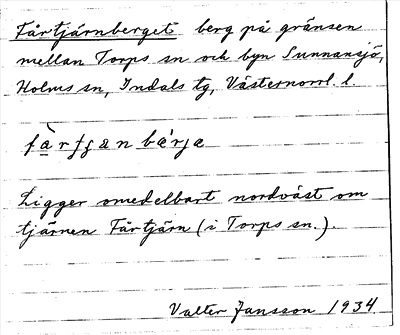 Fårtjärnberget berg på gränsen
mellan Torps sn och byn Sunnansjö,
Holms sn, Indals tg, Västernorrl. l.
Ligger omedelbart nordväst om
tjärnen Fårtjärn (i Torps sn.).
Valter Jansson 1934